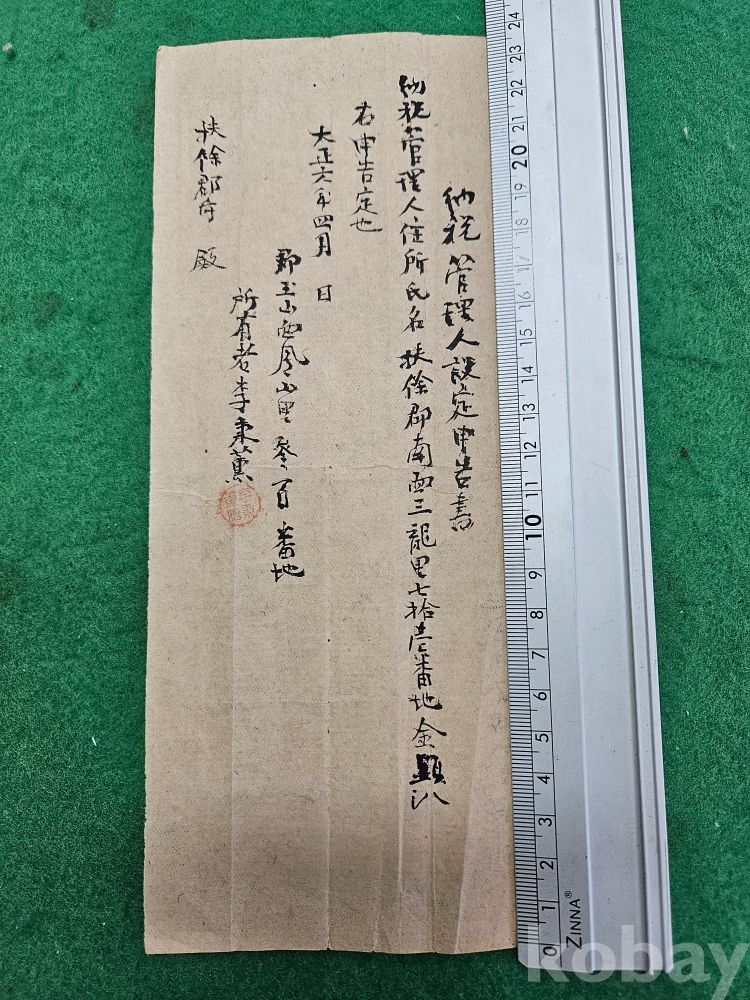 納税管理人設定申告書
納税管理人住所氏名 扶餘郡南面三龍里七拾壱番地 金顯
右申告定也
大正六年四月 日
郡玉山面鳳山里參百番地
所有者 李秉薰
扶餘郡守 殿
0 1 2 3 4 5 6 7 8 9 10 11 12 13 14 15 16 17 18 19 20 21 22 23 24
ZINNA®
kobay